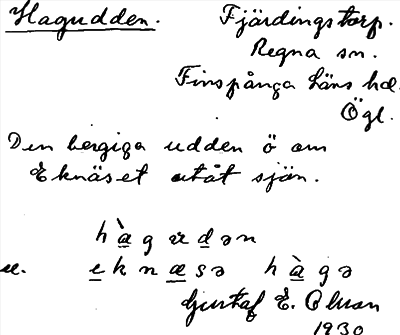 Hagudden. Fjärdingstorp.
Regna sn.
Finspånga läns hd.
Ögl.
Den bergiga udden ö om
Eknäset utåt sjön.
hàgɯdən
ek. eknæsə hàgə
Gustaf E. Olsson
1930